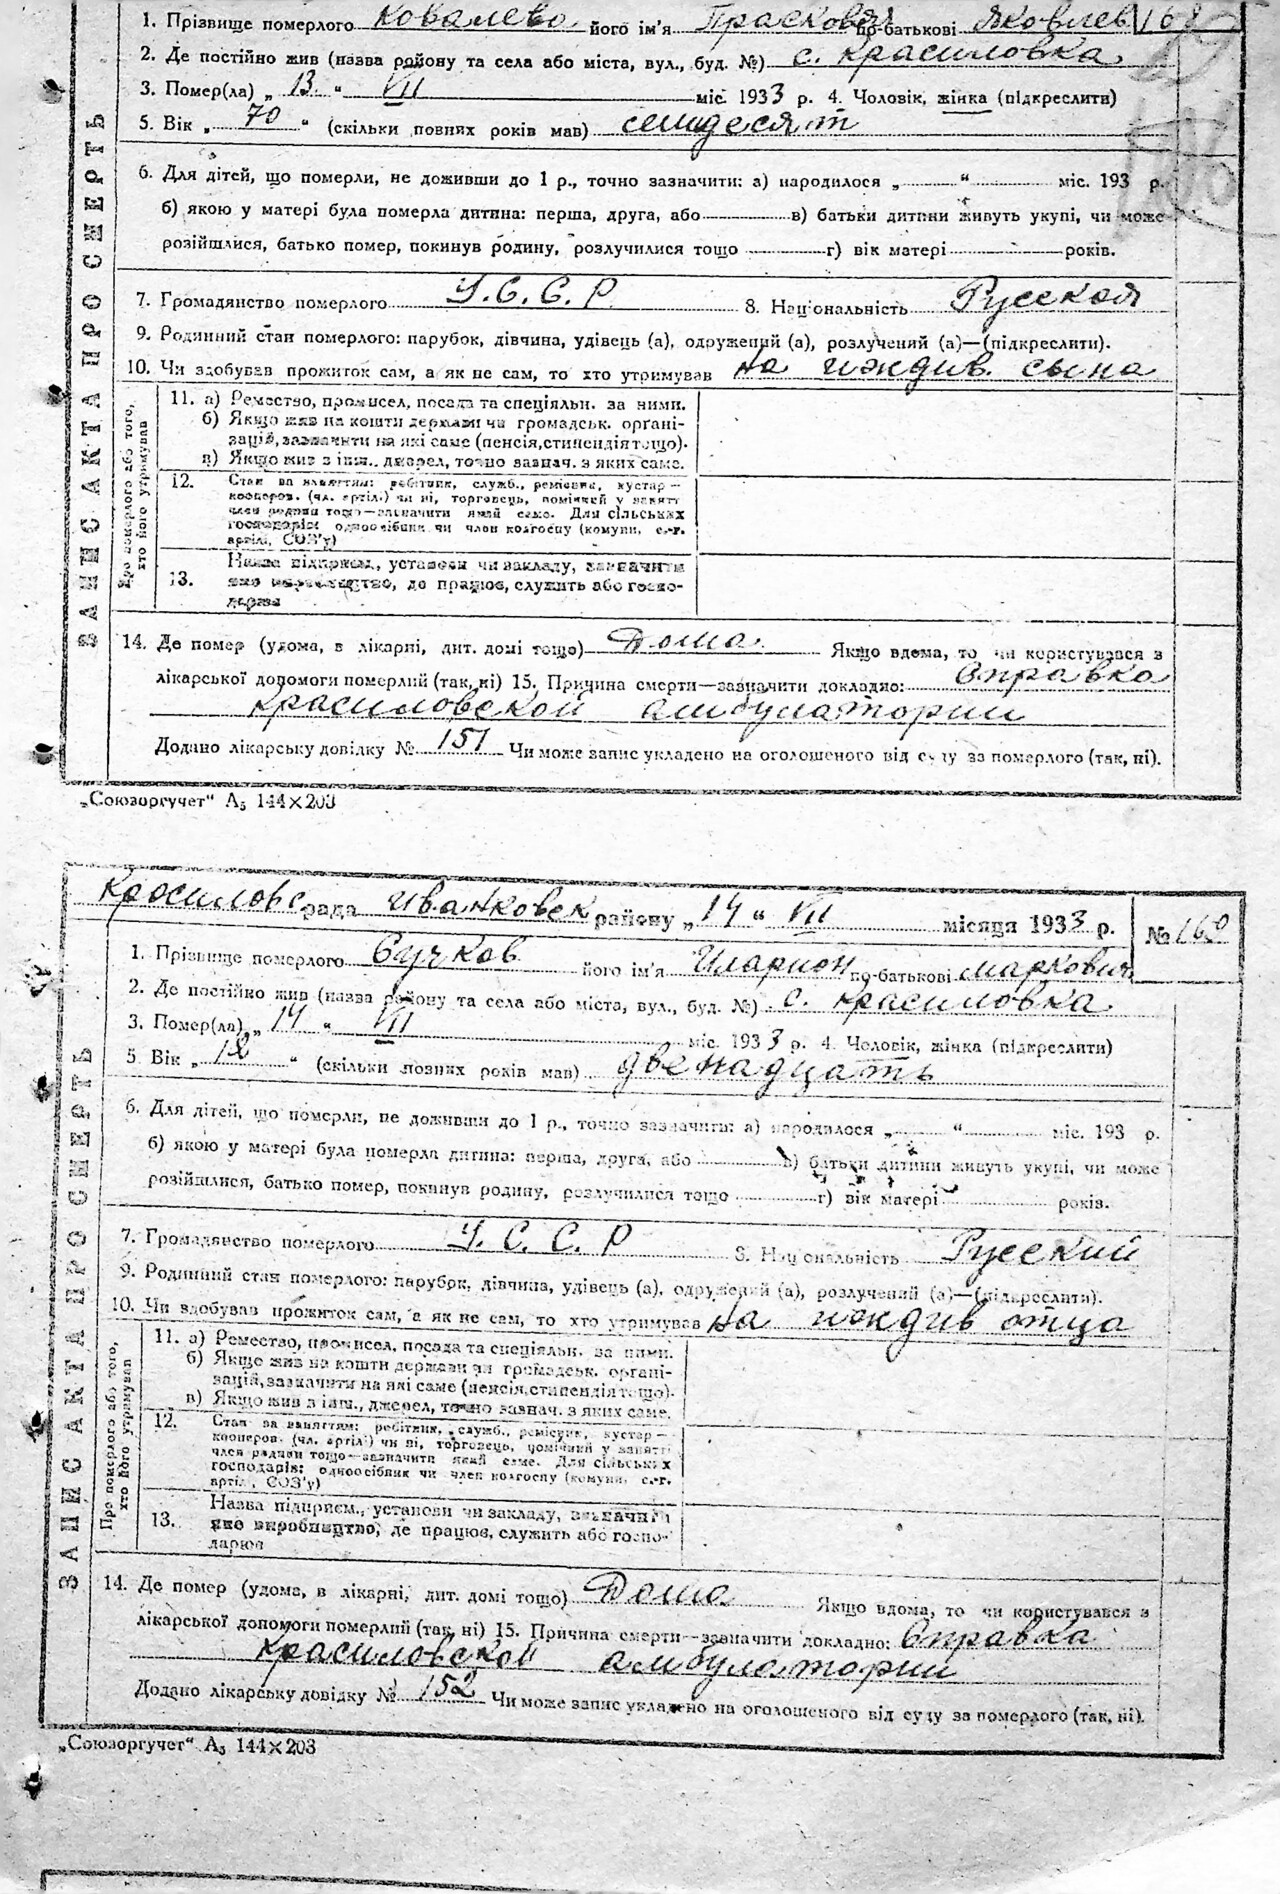 1. Прізвище померлого Ковалева його ім'я Прасковья по-батькові Яковлев 168
2. Де постійно жив (назва району та села або міста, вул., буд. №) с. Красиловка
3. Помер(ла) „ 13 “ VII міс. 1933 р. 4. Чоловік, жінка (підкреслити)
5. Вік „ 70 “ (скільки повних років мав) семидесят
6. Для дітей, що померли, не доживши до 1 р., точно зазначити: а) народилося „ “ міс. 193 р.
б) якою у матері була померла дитина: перша, друга, або в) батьки дитини живуть укупі, чи може
розійшлися, батько помер, покинув родину, розлучилися тощо г) вік матері років.
7. Громадянство померлого У.С.С.Р 8. Національність Русская
9. Родинний стан померлого: парубок, дівчина, удівець (а), одружений (а), розлучений (а)—(підкреслити).
10. Чи здобував прожиток сам, а як не сам, то хто утримував на иждив. сына
ЗАПИС АКТА ПРО СМЕРТЬ
Про померлого або того, хто його утримував
11. а) Ремество, промисел, посада та спеціяльн. за ними.
б) Якщо жив на кошти держави чи громадськ. органі-
зацій, зазначити на які саме (пенсія, стипендія тощо).
в) Якщо жив з інш. джерел, точно зазнач. з яких саме.
12. Стан за заняттям: робітник, служб., ремісник, кустар—
кооперов. (чл. артіл.) чи ні, торговець, помічний у занятті
член родини тощо—зазначити який саме. Для сільських
господарів: одноосібник чи член колгоспу (комуни, с.-г.
артілі, СОЗ'у)
13. Назва підприєм., установи чи закладу, зазначити
яке виробництво, де працює, служить або госпо-
дарює
14. Де помер (удома, в лікарні, дит. домі тощо) Дома Якщо вдома, то чи користувався з
лікарської допомоги померлий (так, ні) 15. Причина смерти—зазначити докладно: Справка
Красиловской амбулатории
Додано лікарську довідку № 151 Чи може запис укладено на оголошеного від суду за померлого (так, ні).
„Союзоргучет“ А5 144×203
Красиловс рада Иванковск району „ 14 “ VII місяця 1933 р. №
1. Прізвище померлого Сучков його ім'я Иларион по-батькові Маркович
2. Де постійно жив (назва району та села або міста, вул., буд. №) с. Красиловка
3. Помер(ла) „ 14 “ VII міс. 1933 р. 4. Чоловік, жінка (підкреслити)
5. Вік „ 12 “ (скільки повних років мав) двенадцать
6. Для дітей, що померли, не доживши до 1 р., точно зазначити: а) народилося „ “ міс. 193 р.
б) якою у матері була померла дитина: перша, друга, або в) батьки дитини живуть укупі, чи може
розійшлися, батько помер, покинув родину, розлучилися тощо г) вік матері років.
7. Громадянство померлого У.С.С.Р 8. Національність Русский
9. Родинний стан померлого: парубок, дівчина, удівець (а), одружений (а), розлучений (а)—(підкреслити).
10. Чи здобував прожиток сам, а як не сам, то хто утримував на иждив отца
ЗАПИС АКТА ПРО СМЕРТЬ
Про померлого або того, хто його утримував
11. а) Ремество, промисел, посада та спеціяльн. за ними.
б) Якщо жив на кошти держави чи громадськ. органі-
зацій, зазначити на які саме (пенсія, стипендія тощо).
в) Якщо жив з інш., джерел, точно зазнач. з яких саме.
12. Стан за заняттям: робітник, служб., ремісник, кустар—
кооперов. (чл. артіл.) чи ні, торговець, помічний у занятті
член родини тощо—зазначити який саме. Для сільських
господарів: одноосібник чи член колгоспу (комуни, с.-г.
артілі, СОЗ'у)
13. Назва підприєм., установи чи закладу, зазначити
яке виробництво, де працює, служить або госпо-
дарює
14. Де помер (удома, в лікарні, дит. домі тощо) Дома Якщо вдома, то чи користувався з
лікарської допомоги померлий (так, ні) 15. Причина смерти—зазначити докладно: Справка
Красиловской амбулатории
Додано лікарську довідку № 152 Чи може запис укладено на оголошеного від суду за померлого (так, ні).
„Союзоргучет“ А5 144×203